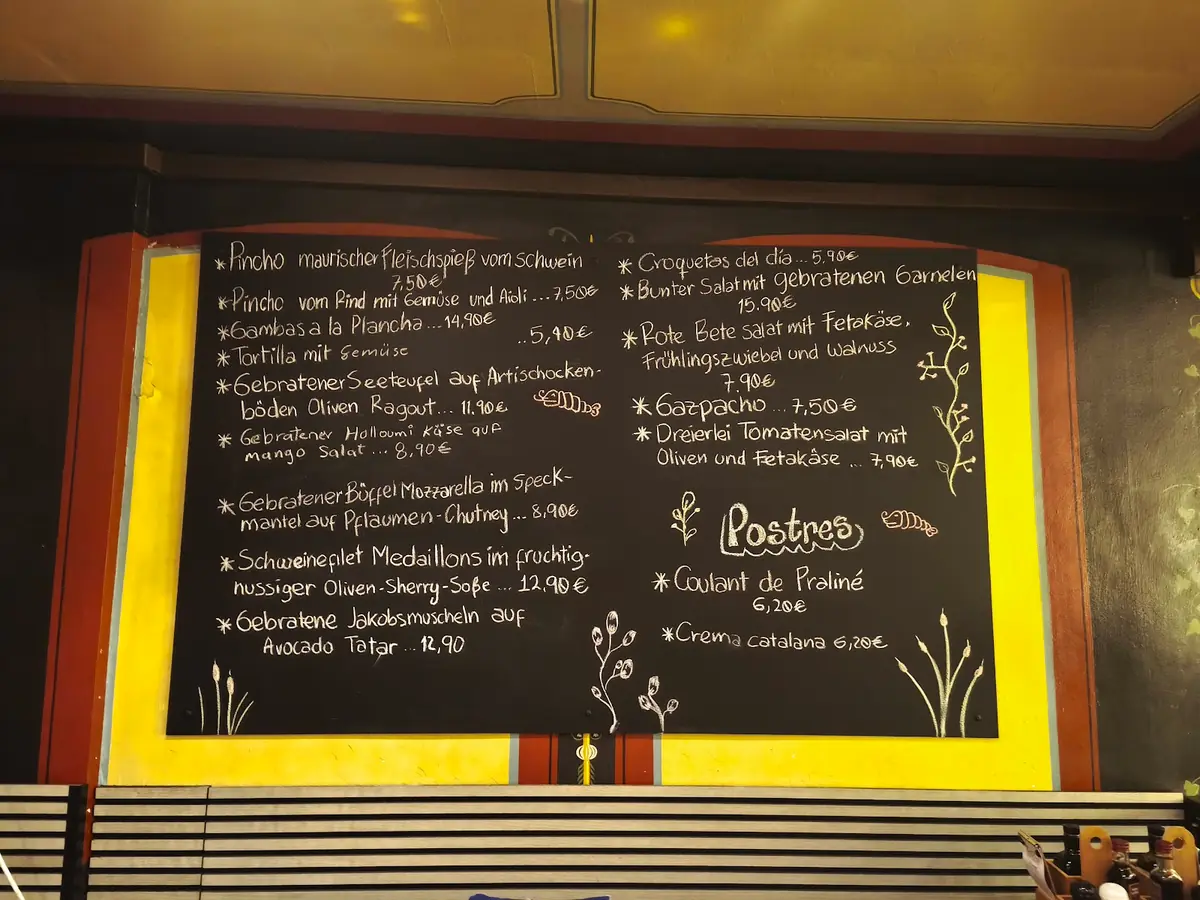 * Pincho maurischer Fleischspieß vom Schwein
7,50€
* Pincho vom Rind mit Gemüse und Aioli ... 7,50€
* Gambas a la Plancha ... 14,90€
* Tortilla mit Gemüse ..5,40€
* Gebratener Seeteufel auf Artischocken-
böden Oliven Ragout... 11.90€
* Gebratener Holloumi Käse auf
mango Salat ... 8,90€
* Gebratener Büffel Mozzarella im Speck-
mantel auf Pflaumen-Chutney... 8,90€
* Schweinefilet Medaillons im fruchtig-
nussiger Oliven-Sherry-Soße ... 12,90€
* Gebratene Jakobsmuscheln auf
Avocado Tatar ... 12,90
* Croquetas del día ... 5.90€
* Bunter Salat mit gebratenen Garnelen
15.90€
* Rote Bete salat mit Fetakäse,
Frühlingszwiebel und Walnuss
7.90€
* Gazpacho ... 7,50€
* Dreierlei Tomatensalat mit
Oliven und Fetakäse ... 7,90€
Postres
* Coulant de Praliné
6,20€
* Crema catalana 6,20€